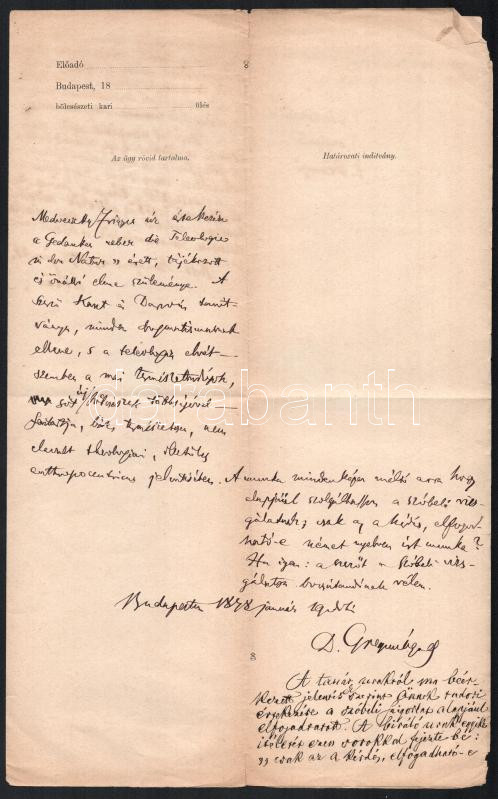 Előadó
Budapest, 18
bölcsészeti kari ülés
Az ügy rövid tartalma.
Határozati inditvány.
Medveczky Frigyes úr értekezése
a Gedanken ueber die Teleologie
in der Natur érett, tájékozott
és önálló elme szüleménye. A
szerző Kant és Darwin tanít-
ványa, minden dogmatismusnak
ellene, s a teleologia elvét
szemben a mai természettudósok,
sőt többségével
fentartja, bár természetesen, nem
elavult theologiai, illetőleg
anthropocentricus jelentésében. A munka mindenképen méltó arra hogy
alapjául szolgálhasson a szóbeli vizs-
gálatnak; csak az a kérdés, elfogad-
ható-e német nyelven írt munka?
Ha igen: a szerzőt a szóbeli vizs-
gálatra bocsátandónak vélem.
Budapesten 1878 január 19
D. Greguss Ágost
A tanár uraktól ma beér-
kezett jelentés szerint Önnek tudori
értekezése a szóbeli szigorlat alapjául
elfogadtatott. A bíráló urak egyike
ítéletét ezen sorokkal fejezte be:
„csak az a kérdés, elfogadható-e
darabanth